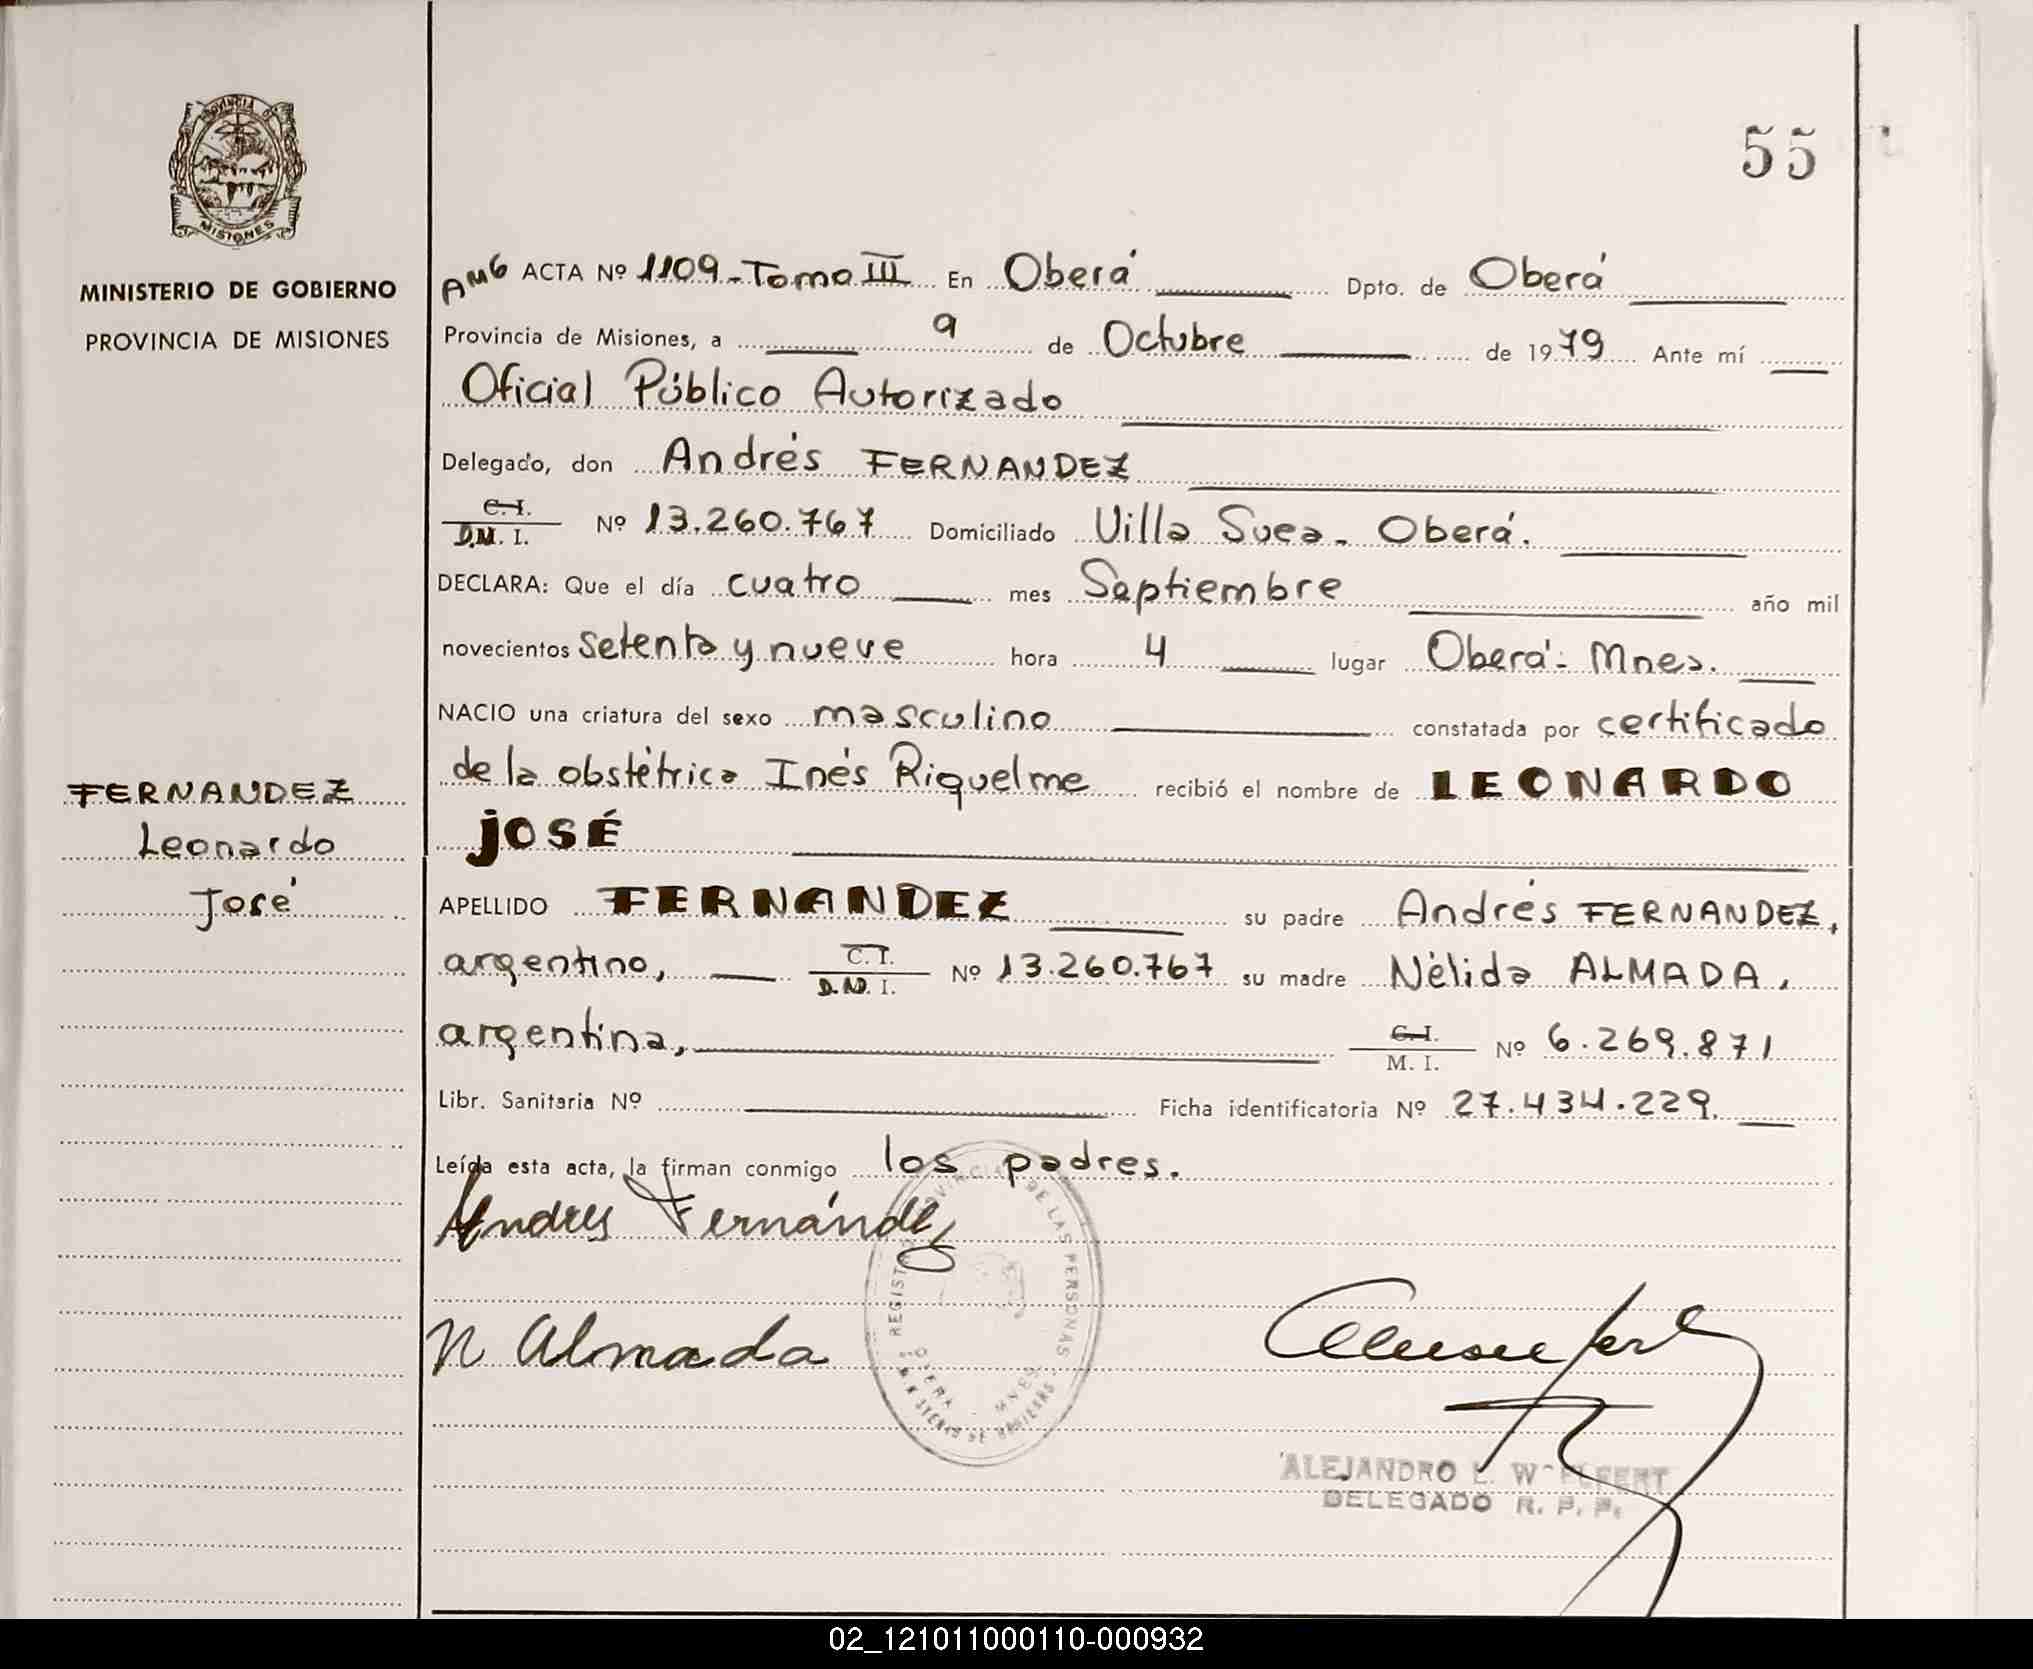 PROVINCIA D
MISIONES
MINISTERIO DE GOBIERNO
PROVINCIA DE MISIONES
55
AMG ACTA Nº 1109 - Tomo III En Oberá Dpto. de Oberá
Provincia de Misiones, a 9 de Octubre de 1979 Ante mí
Oficial Público Autorizado
Delegado, don Andrés FERNANDEZ
C. I.
D.M. I. Nº 13.260.767 Domiciliado Villa Svea - Oberá.
DECLARA: Que el día cuatro mes Septiembre año mil
novecientos setenta y nueve hora 4 lugar Oberá - Mnes.
NACIO una criatura del sexo masculino constatada por certificado
de la obstétrica Inés Riquelme recibió el nombre de LEONARDO
JOSÉ
FERNANDEZ
Leonardo
José
APELLIDO FERNANDEZ su padre Andrés FERNANDEZ,
argentino, C. I.
D.N. I. Nº 13.260.767 su madre Nélida ALMADA,
argentina, C. I.
M. I. Nº 6.269.871
Libr. Sanitaria Nº Ficha identificatoria Nº 27.434.229.
Leída esta acta, la firman conmigo los padres.
Andres Fernández
N Almada
REGIST PROVINCIAL DE LAS PERSONAS
OBERA MNES.
MINISTERIO DE GOBIERNO
ALEJANDRO L. W LFERT
DELEGADO R. P. P.
02_121011000110-000932